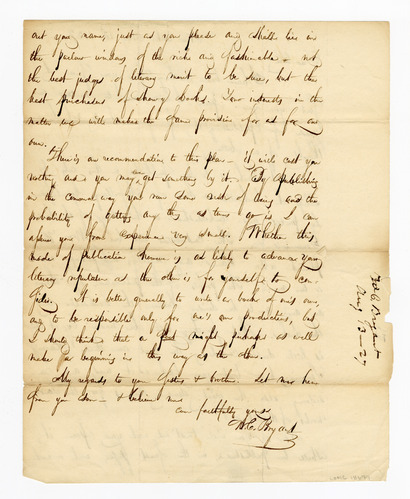 out your name, just as you please and shall lie in
the parlour windows of the rich and fashionable – not
the best judges of literary merit to be sure, but the
best purchasers of showy books. Your interests in the
matter we will make the same provision for as for our
own.
There is one recommendation to this plan – it will cost you
nothing and you may get something by it. By publishing
in the common way you run some risk of losing and the
probability of getting any thing as times go is I can
assure you from experience very small. Whether this
mode of publication however is as likely to advance your
literary reputation as the other is for yourself to con-
sider. It is better generally to write a book of one's own,
and to be responsible only for one's own productions, but
I think that a poet might perhaps as well
make his beginning in this way as the other.
My regards to your sister & brother. Let me hear
from you soon – & believe me
Yours faithfully
W. C. Bryant
W C Bryant
Aug 3 – 27